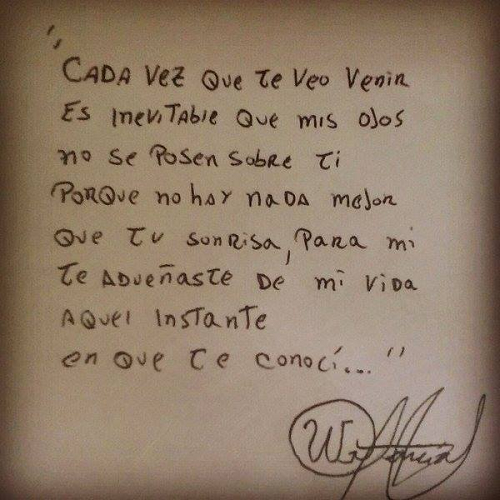 "CADA VEZ QUE TE VEO VENIR
ES INEVITABLE QUE MIS OJOS
NO SE POSEN SOBRE TI
PORQUE NO HAY NADA MEJOR
QUE TU SONRISA, PARA MI
TE ADUEÑASTE DE MI VIDA
AQUEL INSTANTE
EN QUE TE CONOCÍ..."